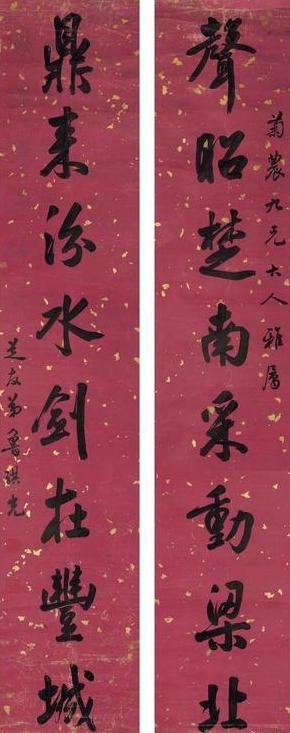 菊農九兄大人雅屬
聲昭楚南采動梁北
鼎來汾水劍在豐城
芝友弟魯琪光